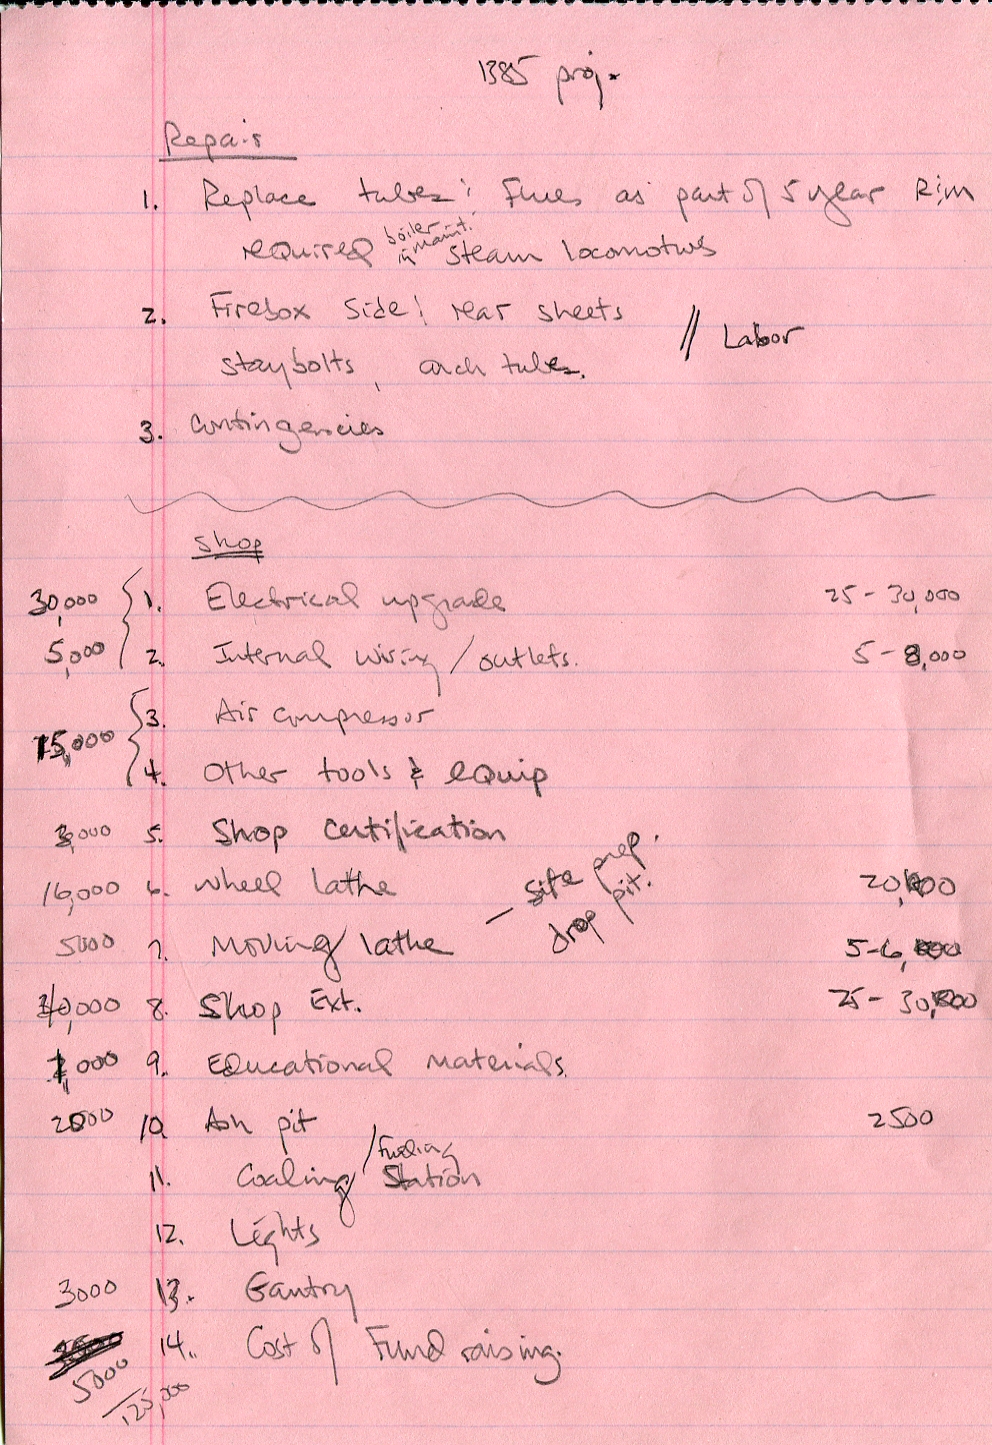 1385 proj.
Repair
1. Replace tubes & Flues as part of 5 year Rim
required boiler maint. in steam locomotives
2. Firebox side & rear sheets
staybolts, arch tubes. // Labor
3. Contingencies
Shop
30,000 1. Electrical upgrade 25-30,000
5,000 2. Internal wiring/outlets. 5-8,000
15,000 3. Air compressor
4. Other tools & equip
3,000 5. Shop Certification
16,000 6. Wheel lathe - site prep. drop pit. 20,000
5000 7. Moving lathe 5-6,000
8. Shop Ext. 25-30,000
,000 9. Educational Materials.
2000 10. Ash pit 2500
11. Coaling/Fueling Station
12. Lights
3000 13. Gantry
14. Cost of Fund raising.
5000
125,000